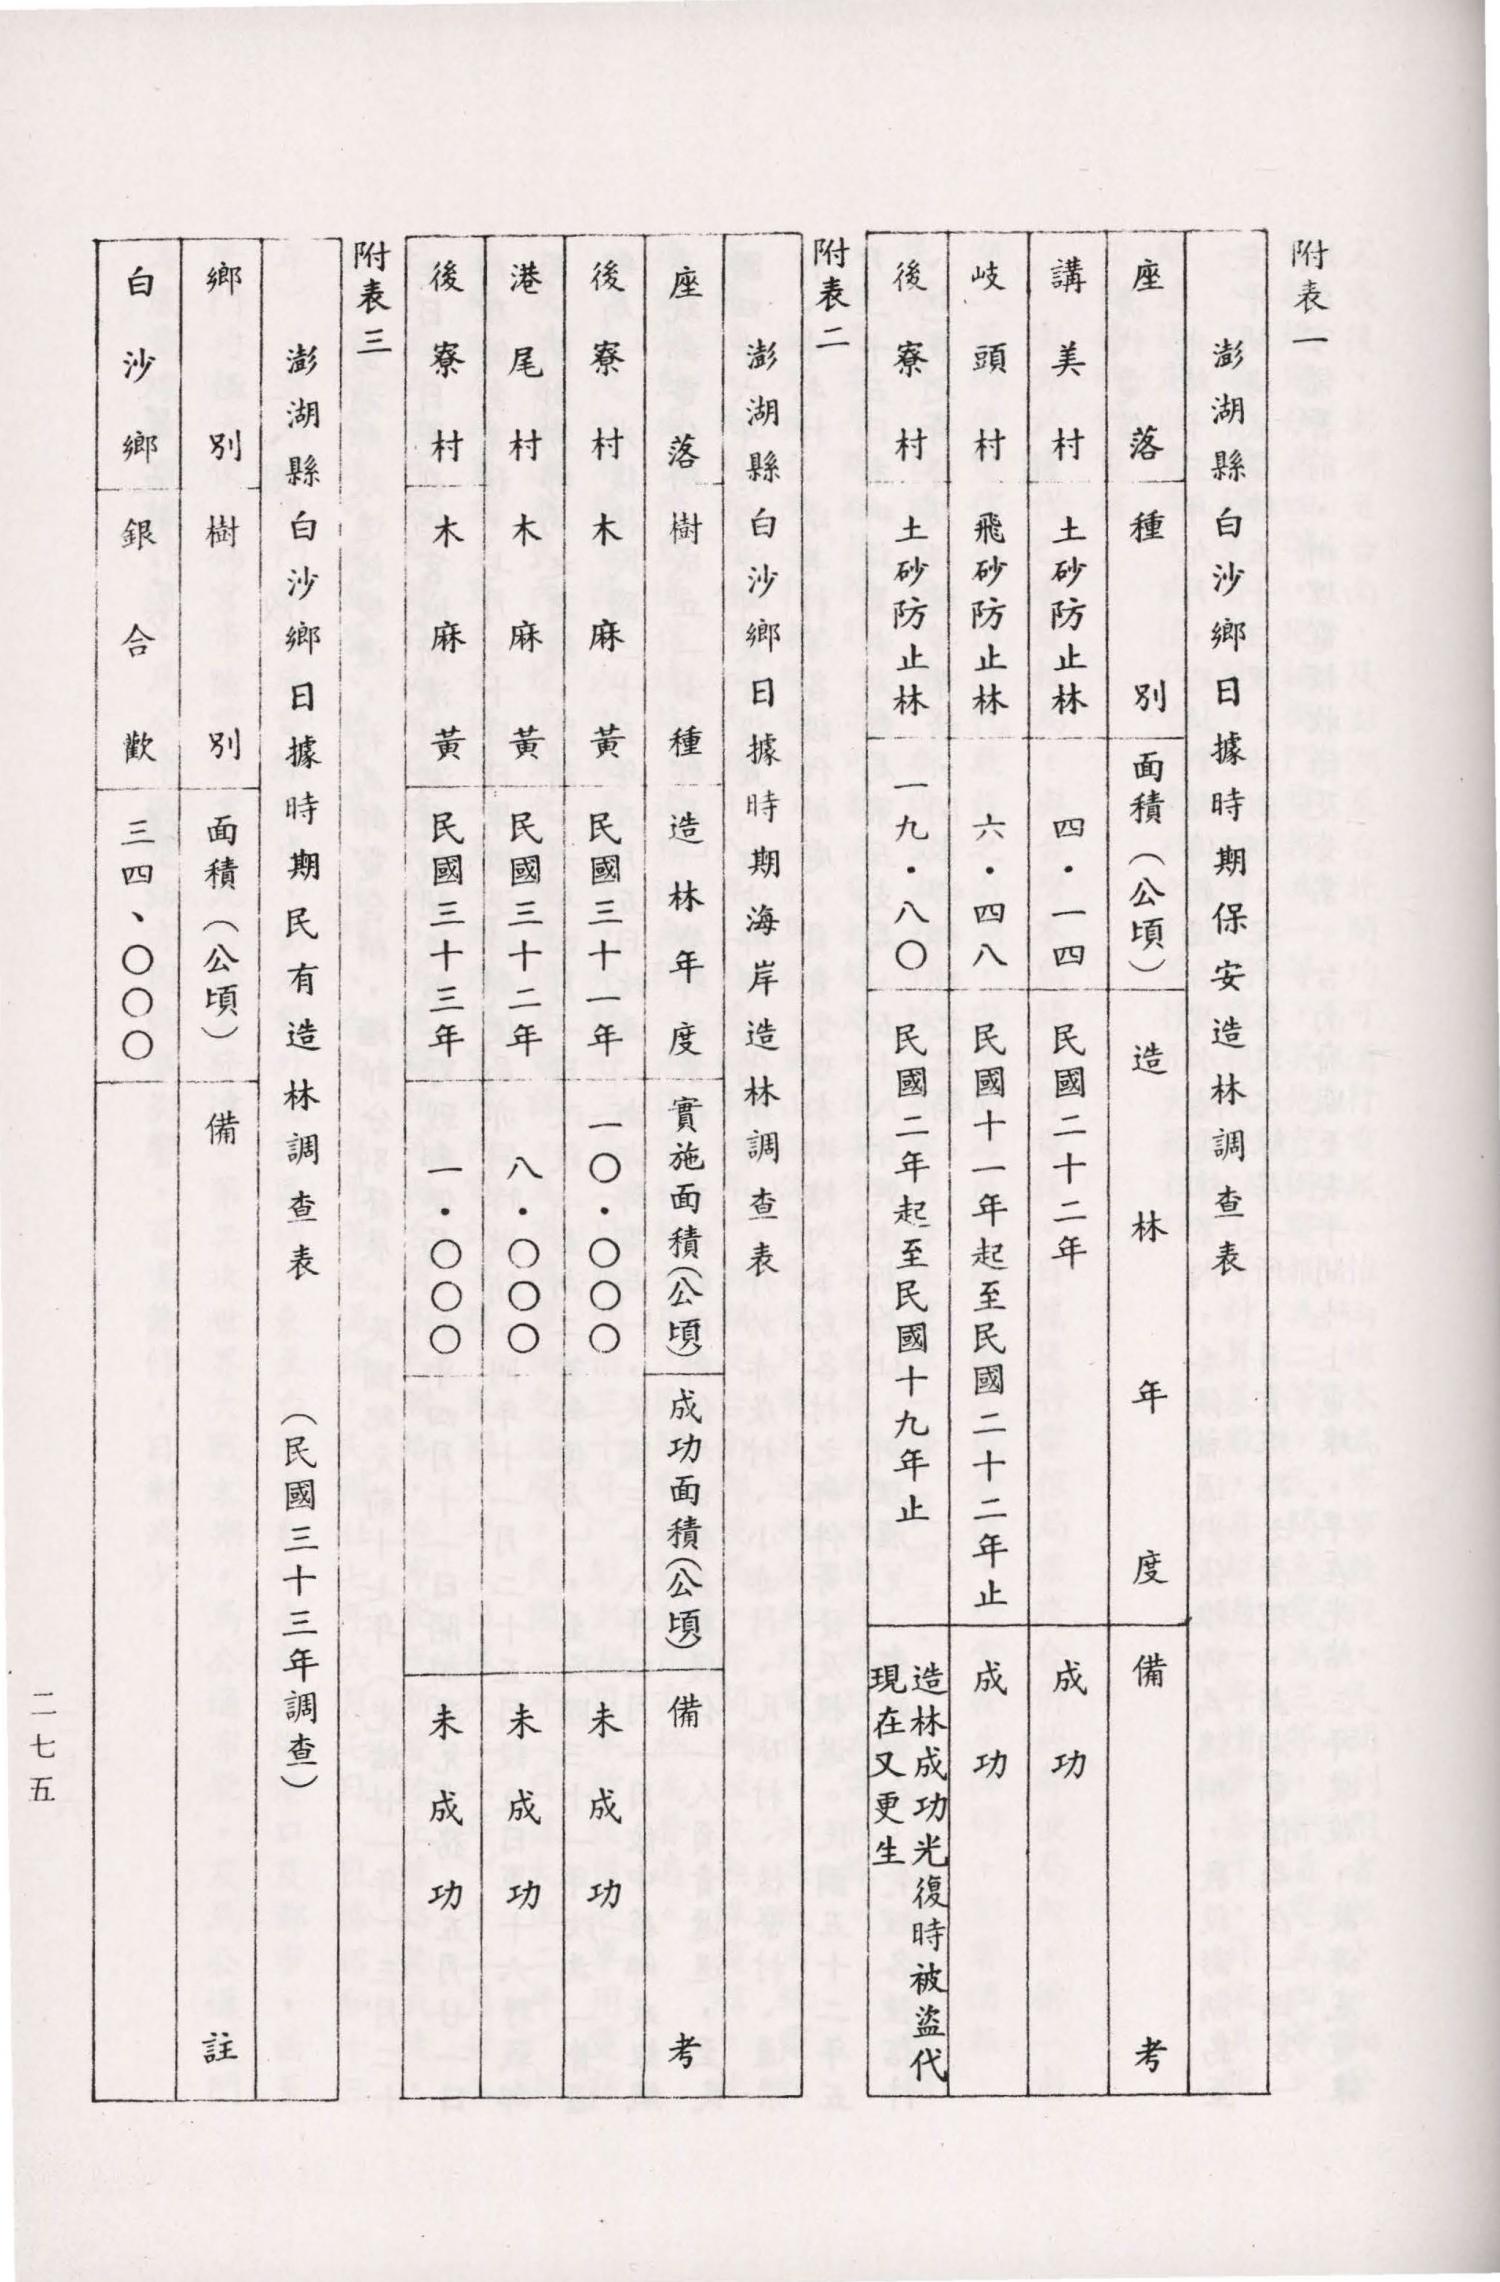 附表一
澎湖縣白沙鄉日據時期保安造林調查表
座落 種別 面積（公頃） 造林年度 備考
講美村 土砂防止林 四・一四 民國二十二年 成功
岐頭村 飛砂防止林 六・四八 民國十一年起至民國二十二年止 成功
後寮村 土砂防止林 一九・八〇 民國二年起至民國十九年止 造林成功光復時被盜代
現在又更生
附表二
澎湖縣白沙鄉日據時期海岸造林調查表
座落 樹種 造林年度 實施面積（公頃） 成功面積（公頃） 備考
後寮村 木麻黃 民國三十一年 一〇・〇〇〇 未成功
港尾村 木麻黃 民國三十二年 八・〇〇〇 未成功
後寮村 木麻黃 民國三十三年 一・〇〇〇 未成功
附表三
澎湖縣白沙鄉日據時期民有造林調查表 （民國三十三年調查）
鄉別 樹別 面積（公頃） 備註
白沙鄉 銀合歡 三四、〇〇〇
二七五